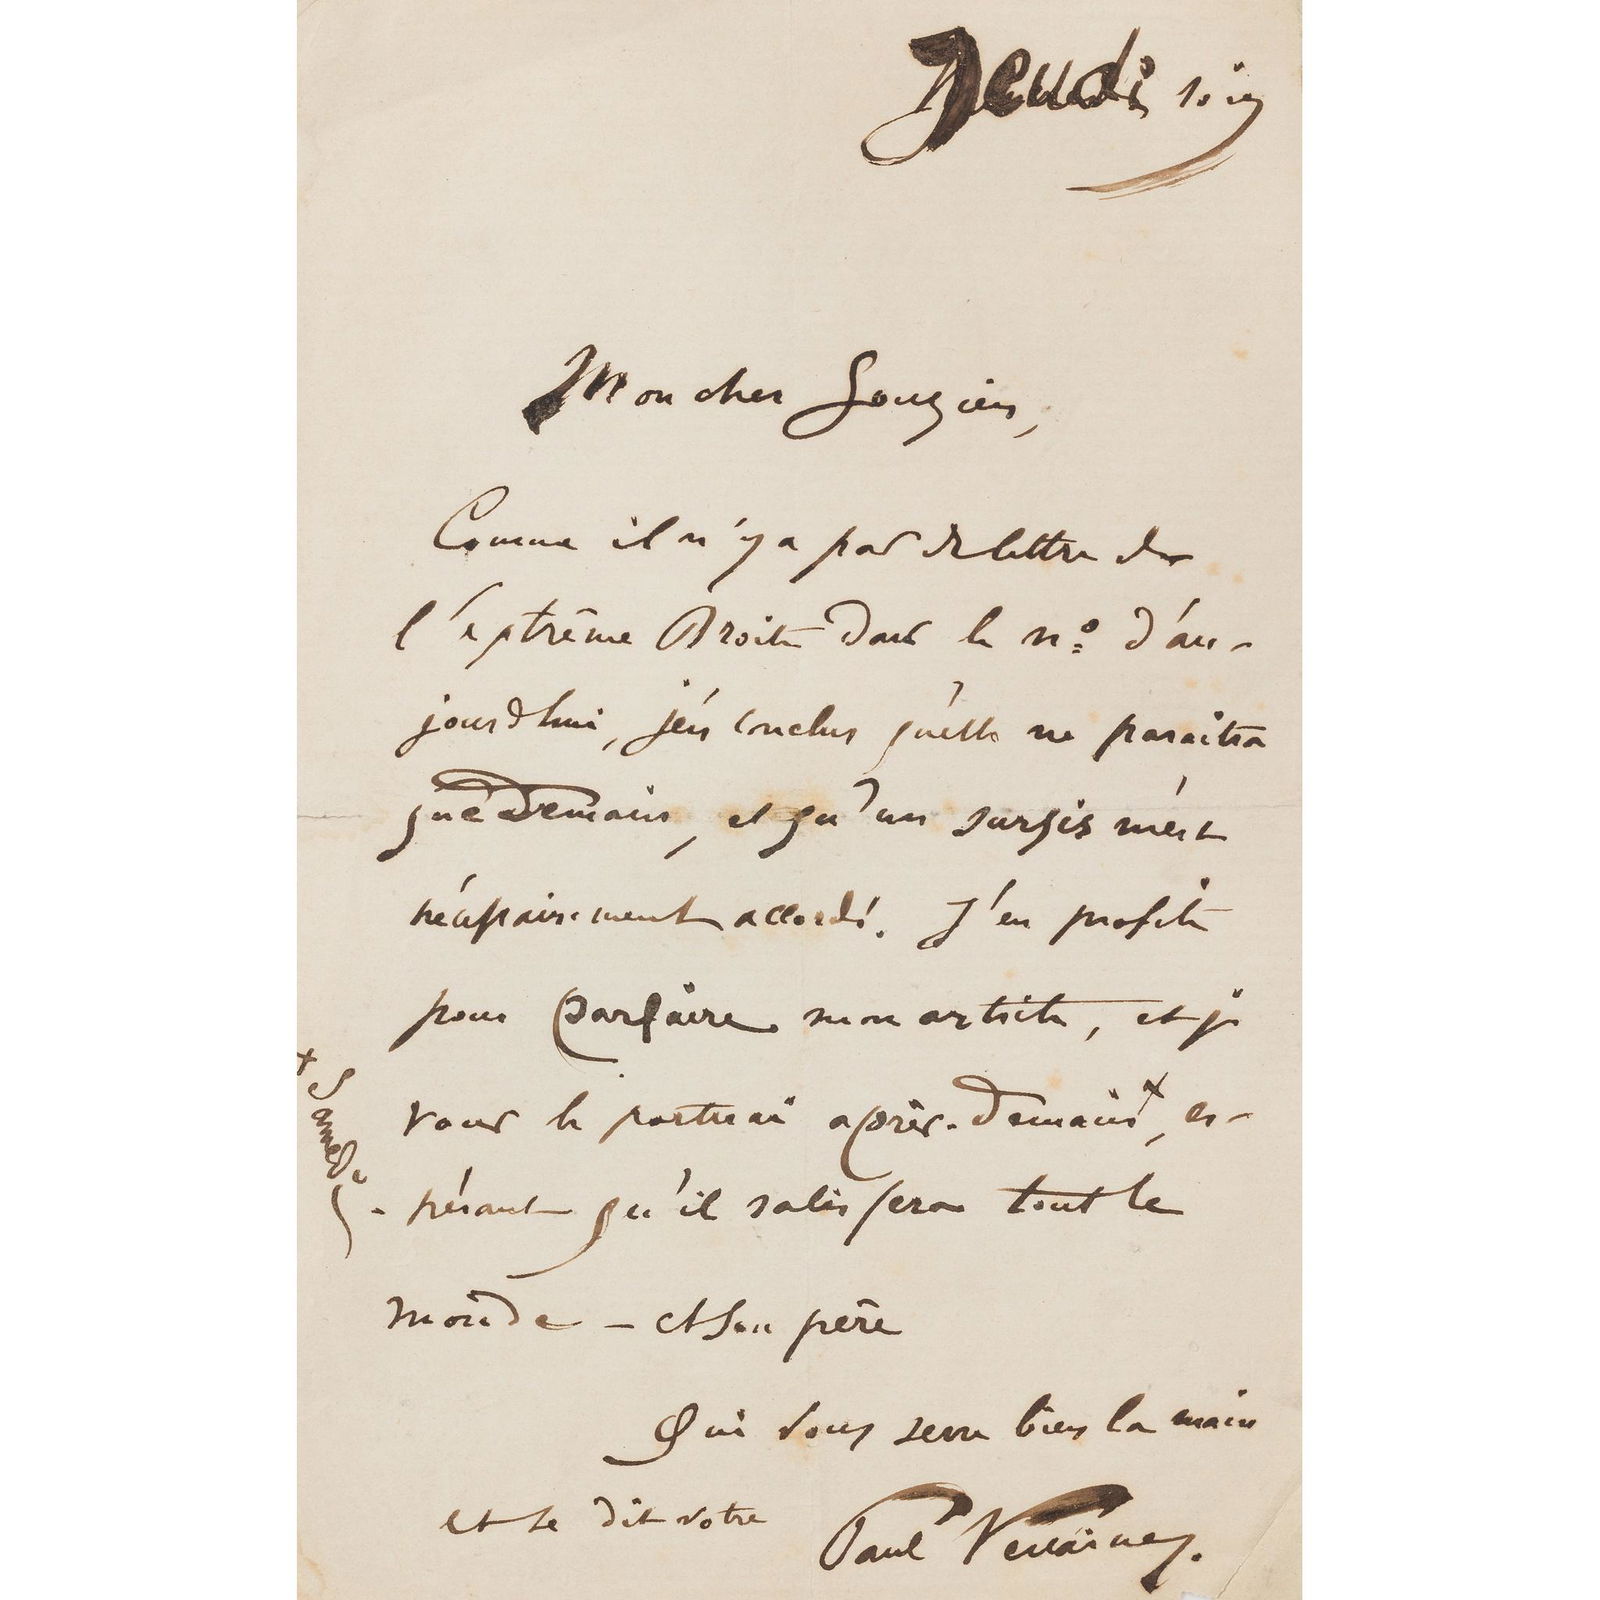 Jeudi soir
Mon cher Gouzien,
Comme il n'y a pas de lettre de
l'extrême Droite dans le n° d'au-
jourd'hui, j'en conclus qu'elle ne paraîtra
que demain, et qu'un sursis m'est
nécessairement accordé. J'en profite
pour parfaire mon article, et je
vous le porterai après-demain x, es-
x Samedi
- pérant qu'il satisfera tout le
monde — et son père
Qui vous serre bien la main
et se dit votre
Paul Verlaine.